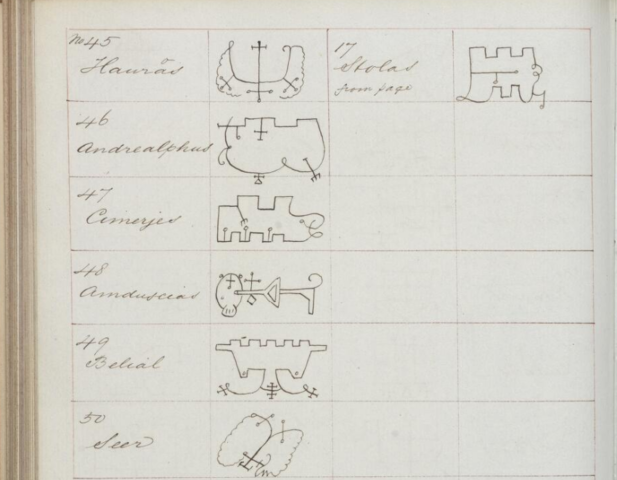 No 45
Haurās
17
Stolas
from page
46
Andrealphus
47
Cimerjes
48
Amduscias
49
Belial
50
Seer